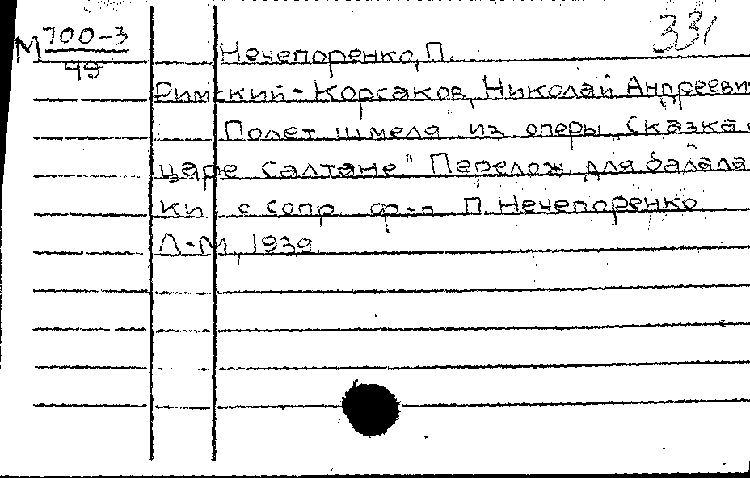 М 700-3
49
331
Нечепоренко, П.
Римский-Корсаков, Николай Андрееви
Полет шмеля из оперы „Сказка о
царе Салтане" Перелож для балала
ки с сопр ф-п П. Нечепоренко
Л-М, 1939